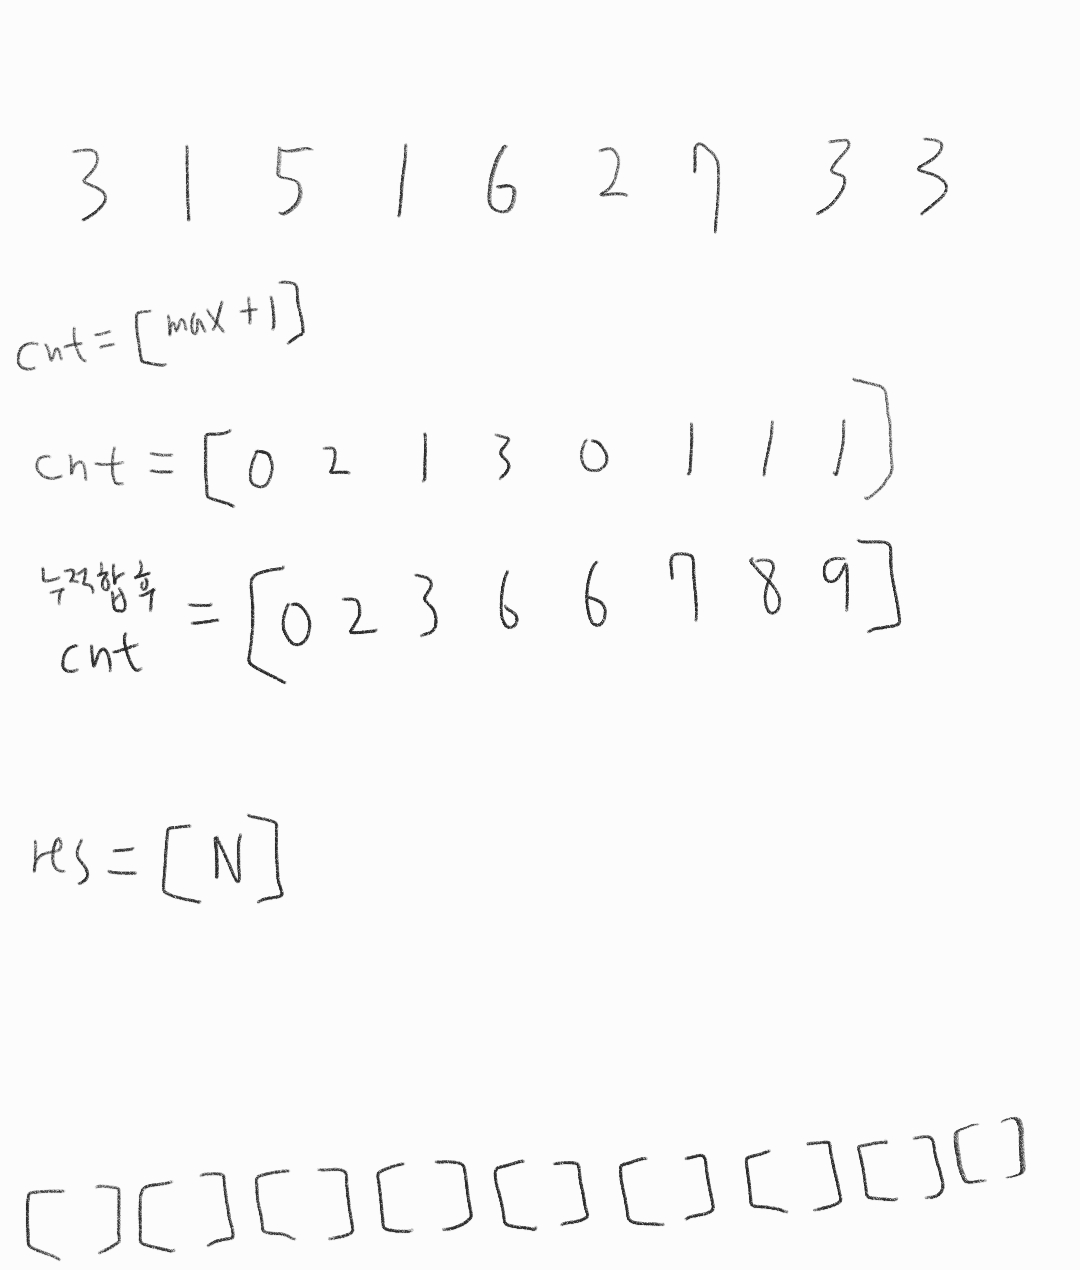 3 1 5 1 6 2 7 3 3
cnt = [max + 1]
cnt = [0 2 1 3 0 1 1 1]
누적합 후
cnt = [0 2 3 6 6 7 8 9]
res = [N]
[ ] [ ] [ ] [ ] [ ] [ ] [ ] [ ] [ ]